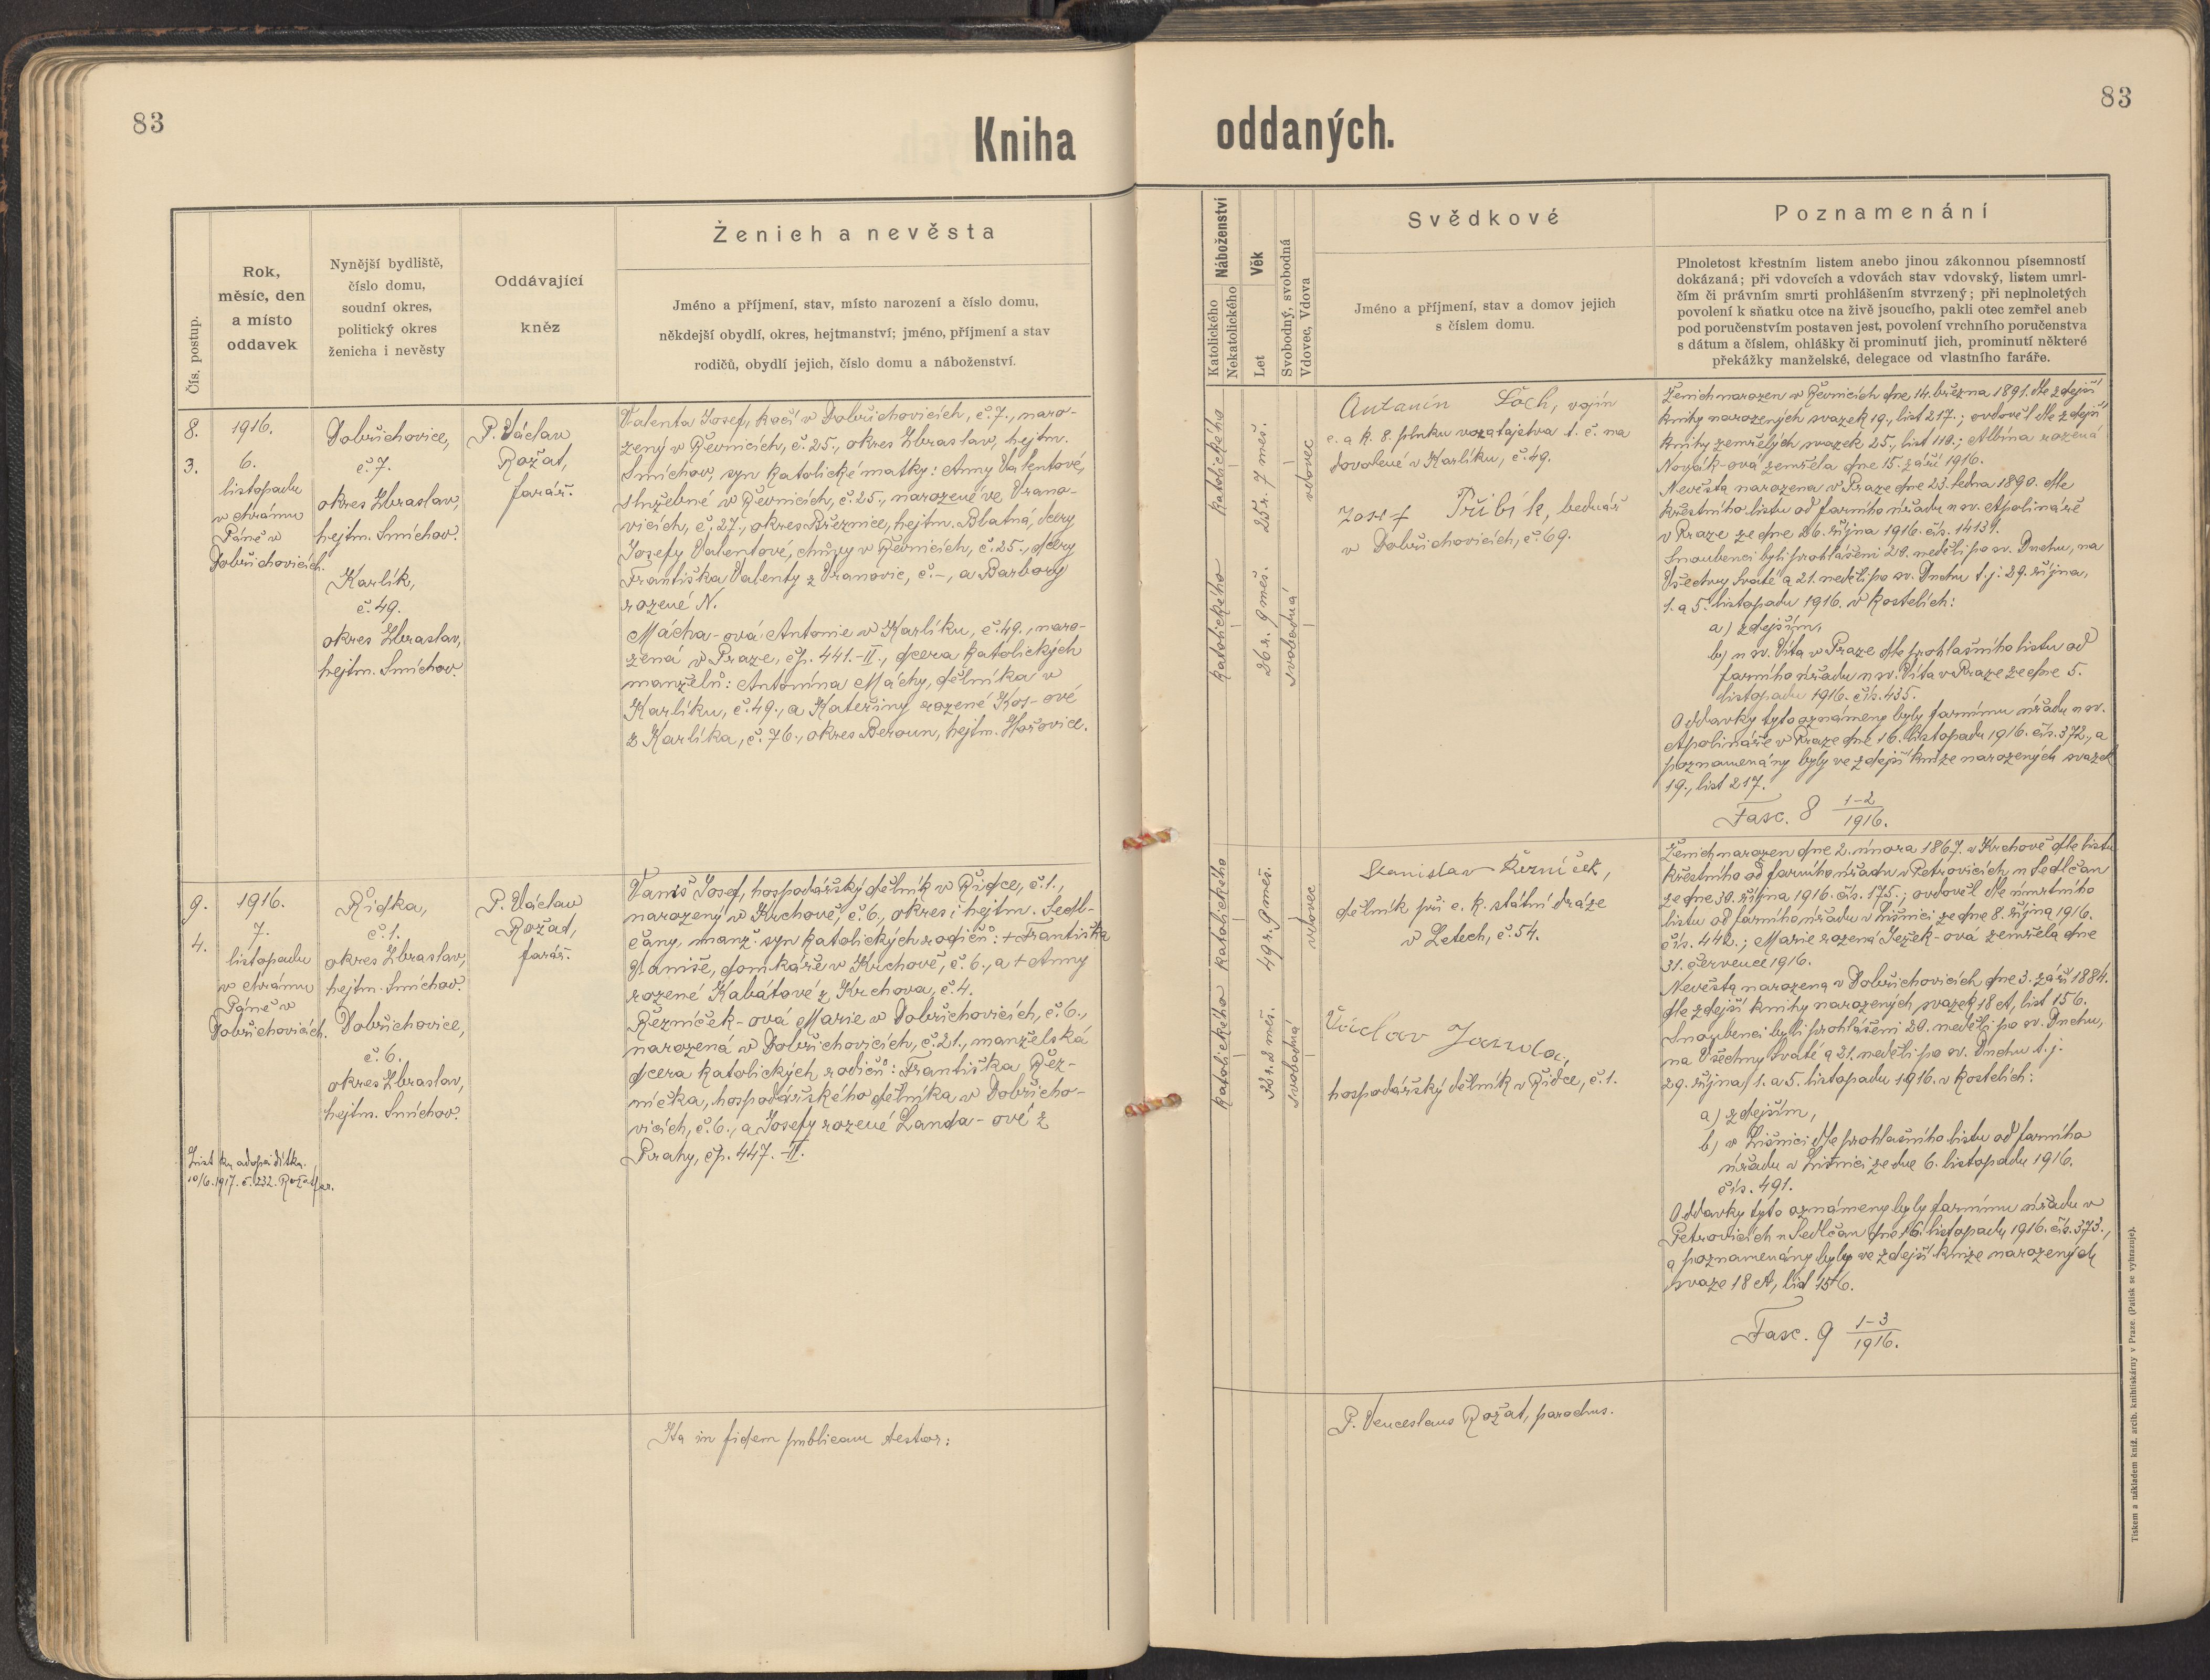 83
83
Kniha oddaných.
Čís. postup.
Rok,
měsíc, den
a místo
oddavek
Nynější bydliště,
číslo domu,
soudní okres,
politický okres
ženicha i nevěsty
Oddávající
kněz
Ženich a nevěsta
Jméno a příjmení, stav, místo narození a číslo domu,
někdejší obydlí, okres, hejtmanství; jméno, příjmení a stav
rodičů, obydlí jejich, číslo domu a náboženství.
Náboženství
Katolického
Nekatolického
Věk
Let
Svobodný, svobodná
Vdovec, Vdova
Svědkové
Jméno a příjmení, stav a domov jejich
s číslem domu.
Poznamenání
Plnoletost křestním listem anebo jinou zákonnou písemností
dokázaná; při vdovcích a vdovách stav vdovský, listem umrl-
čím či právním smrti prohlášením stvrzený; při neplnoletých
povolení k sňatku otce na živě jsoucího, pakli otec zemřel aneb
pod poručenstvím postaven jest, povolení vrchního poručenstva
s dátum a číslem, ohlášky či prominutí jich, prominutí některé
překážky manželské, delegace od vlastního faráře.
8.
3.
1916.
6.
listopadu
v chrámu
Páně v
Dobřichovicích.
Dobřichovice,
č. 7.
okres Zbraslav,
hejtm. Smíchov.
Karlík,
č. 49.
okres Zbraslav,
hejtm. Smíchov.
P. Václav
Rožat,
farář.
Valenta Josef, kočí v Dobřichovicích, č. 7., naro-
zený v Řevnicích, č. 25., okres Zbraslav, hejtm.
Smíchov, syn katolické matky: Anny Valentové,
služebné v Řevnicích, č. 25., narozené ve Vrano-
vicích, č. 27., okres Březnice, hejtm. Blatná, dcery
Josefy Valentové, chůvy v Řevnicích, č. 25., dcery
Františka Valenty z Vranovic, č. -, a Barbory
rozené N.
Mácha-ová Antonie v Karlíku, č. 49., naro-
zená v Praze, čp. 441.-II., dcera katolických
manželů: Antonína Máchy, dělníka v
Karlíku, č. 49., a Kateřiny rozené Kos-ové
z Karlíka, č. 76., okres Beroun, hejtm. Hořovice.
katolického
katolického
25 r. 7 měs.
26 r. 9 měs.
vdovec
svobodná
Antonín Šoch, vojín
c. a k. 8. pluku vozatajstva t. č. na
dovolené v Karlíku, č. 49.
Josef Přibík, bednář
v Dobřichovicích, č. 69.
Ženich narozen v Řevnicích dne 14. března 1891. dle zdejší
knihy narozených svazek 19., list 217.; ovdověl dle zdejší
knihy zemřelých svazek 25., list 110.; Albína rozená
Novák-ová zemřela dne 15. září 1916.
Nevěsta narozena v Praze dne 23. ledna 1890. dle
křestního listu od farního úřadu u sv. Apolináře
v Praze ze dne 26. října 1916. čís. 14131.
Snoubenci byli prohlášeni 20. neděli po sv. Duchu, na
Všechny Svaté a 21. neděli po sv. Duchu t. j. 29. října,
1. a 5. listopadu 1916. v kostelích:
a) zdejším,
b) u sv. Víta v Praze dle prohlašního listu od
farního úřadu u sv. Víta v Praze ze dne 5.
listopadu 1916. čís. 435.
Oddavky tyto oznámeny byly farnímu úřadu u sv.
Apolináře v Praze dne 16. listopadu 1916. čís. 372., a
poznamenány byly ve zdejší knize narozených svazek
19., list 217.
Fasc. 8 1-2/1916.
9.
4.
1916.
7.
listopadu
v chrámu
Páně v
Dobřichovicích.
Řidka,
č. 1.
okres Zbraslav,
hejtm. Smíchov.
Dobřichovice,
č. 6.
okres Zbraslav,
hejtm. Smíchov.
List ku adopci dítka.
10/6. 1917. č. 232. Rožat far.
P. Václav
Rožat,
farář.
Vaniš Josef, hospodářský dělník v Řidce, č. 1.,
narozený v Krchově, č. 6., okres i hejtm. Sedl-
čany, manž. syn katolických rodičů: + Františka
Vaniše, domkáře v Krchově, č. 6., a + Anny
rozené Kabátové z Krchova, č. 4.
Řezníček-ová Marie v Dobřichovicích, č. 6.,
narozená v Dobřichovicích, č. 21., manželská
dcera katolických rodičů: Františka Řez-
níčka, hospodářského dělníka v Dobřicho-
vicích, č. 6., a Josefy rozené Landa-ové z
Prahy, čp. 447.-II.
katolického
katolického
49 r. 9 měs.
32 r. 2 měs.
vdovec
svobodná
Stanislav Řezníček,
dělník při c. k. státní dráze
v Letech, č. 54.
Václav Janda,
hospodářský dělník v Řidce, č. 1.
Ženich narozen dne 2. února 1867. v Krchově dle listu
křestního od farního úřadu v Petrovicích u Sedlčan
ze dne 30. října 1916. čís. 175.; ovdověl dle úmrtního
listu od farního úřadu v Líšnici ze dne 8. října 1916.
čís. 442.; Marie rozená Ježek-ová zemřela dne
31. července 1916.
Nevěsta narozena v Dobřichovicích dne 3. září 1884.
dle zdejší knihy narozených svazek 18 A, list 156.
Snoubenci byli prohlášeni 20. neděli po sv. Duchu,
na Všechny Svaté a 21. neděli po sv. Duchu t. j.
29. října, 1. a 5. listopadu 1916. v kostelích:
a) zdejším,
b) v Líšnici dle prohlašního listu od farního
úřadu v Líšnici ze dne 6. listopadu 1916.
čís. 491.
Oddavky tyto oznámeny byly farnímu úřadu v
Petrovicích u Sedlčan dne 16. listopadu 1916. čís. 373.,
a poznamenány byly ve zdejší knize narozených
svaze 18 A, list 156.
Fasc. 9 1-3/1916.
Ita in fidem publicam testor:
P. Venceslaus Rožat, parochus.
Tiskem a nákladem kníž. arcib. knihtiskárny v Praze. (Patisk se vyhrazuje).